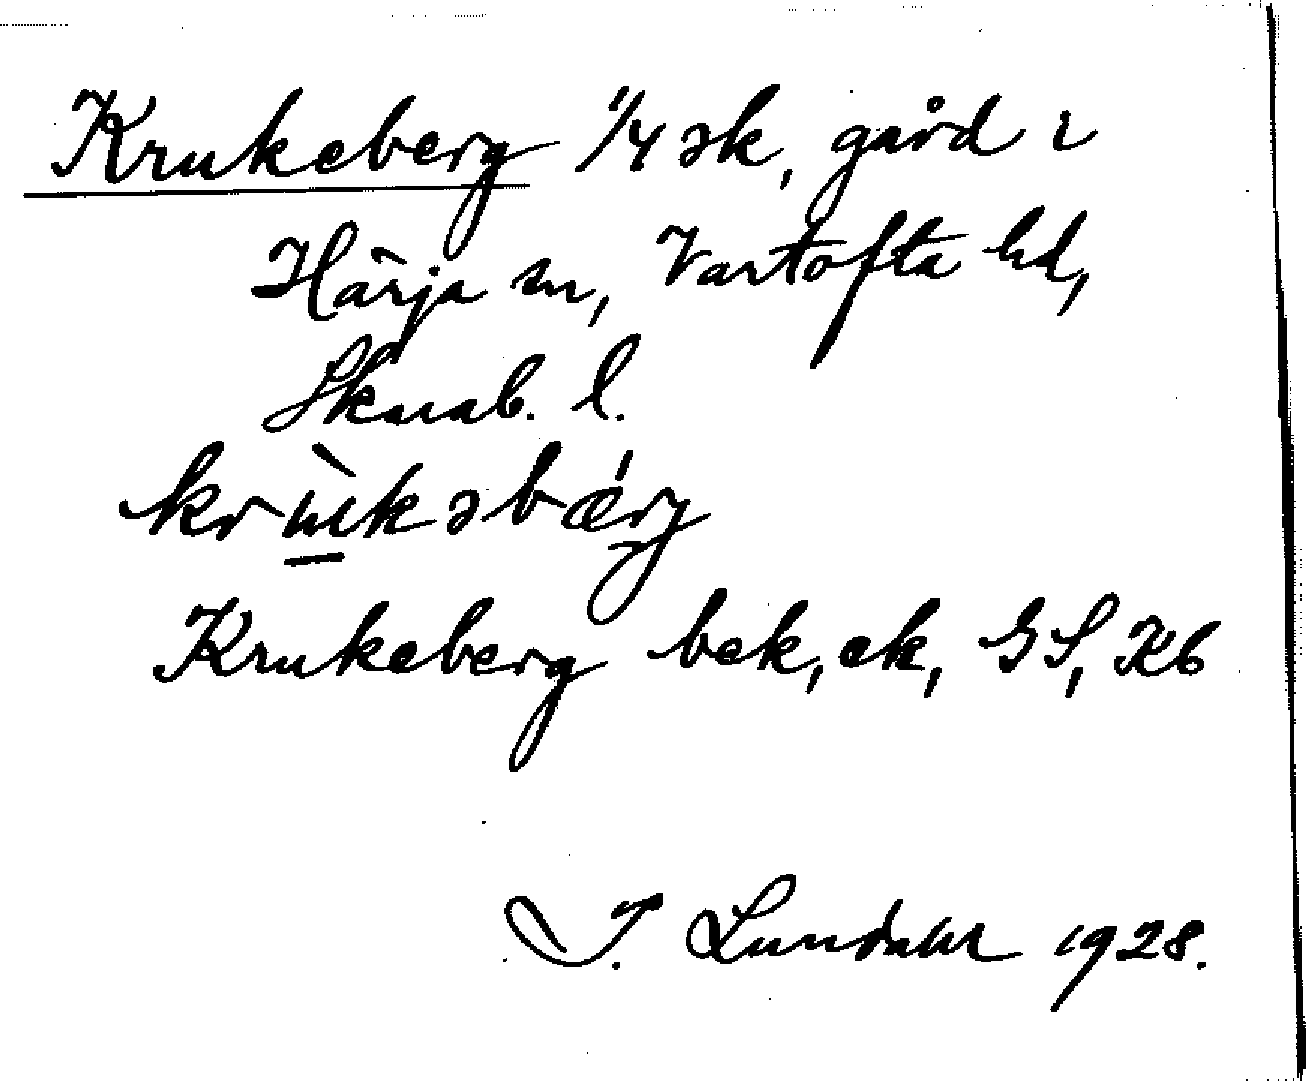 Krukeberg 1/4 sk, gård i
Härja sn, Vartofta hd,
Skarab. l.
krùkəbǽrj
Krukeberg bek, ek, GS, Kb
I. Lundahl 1928.